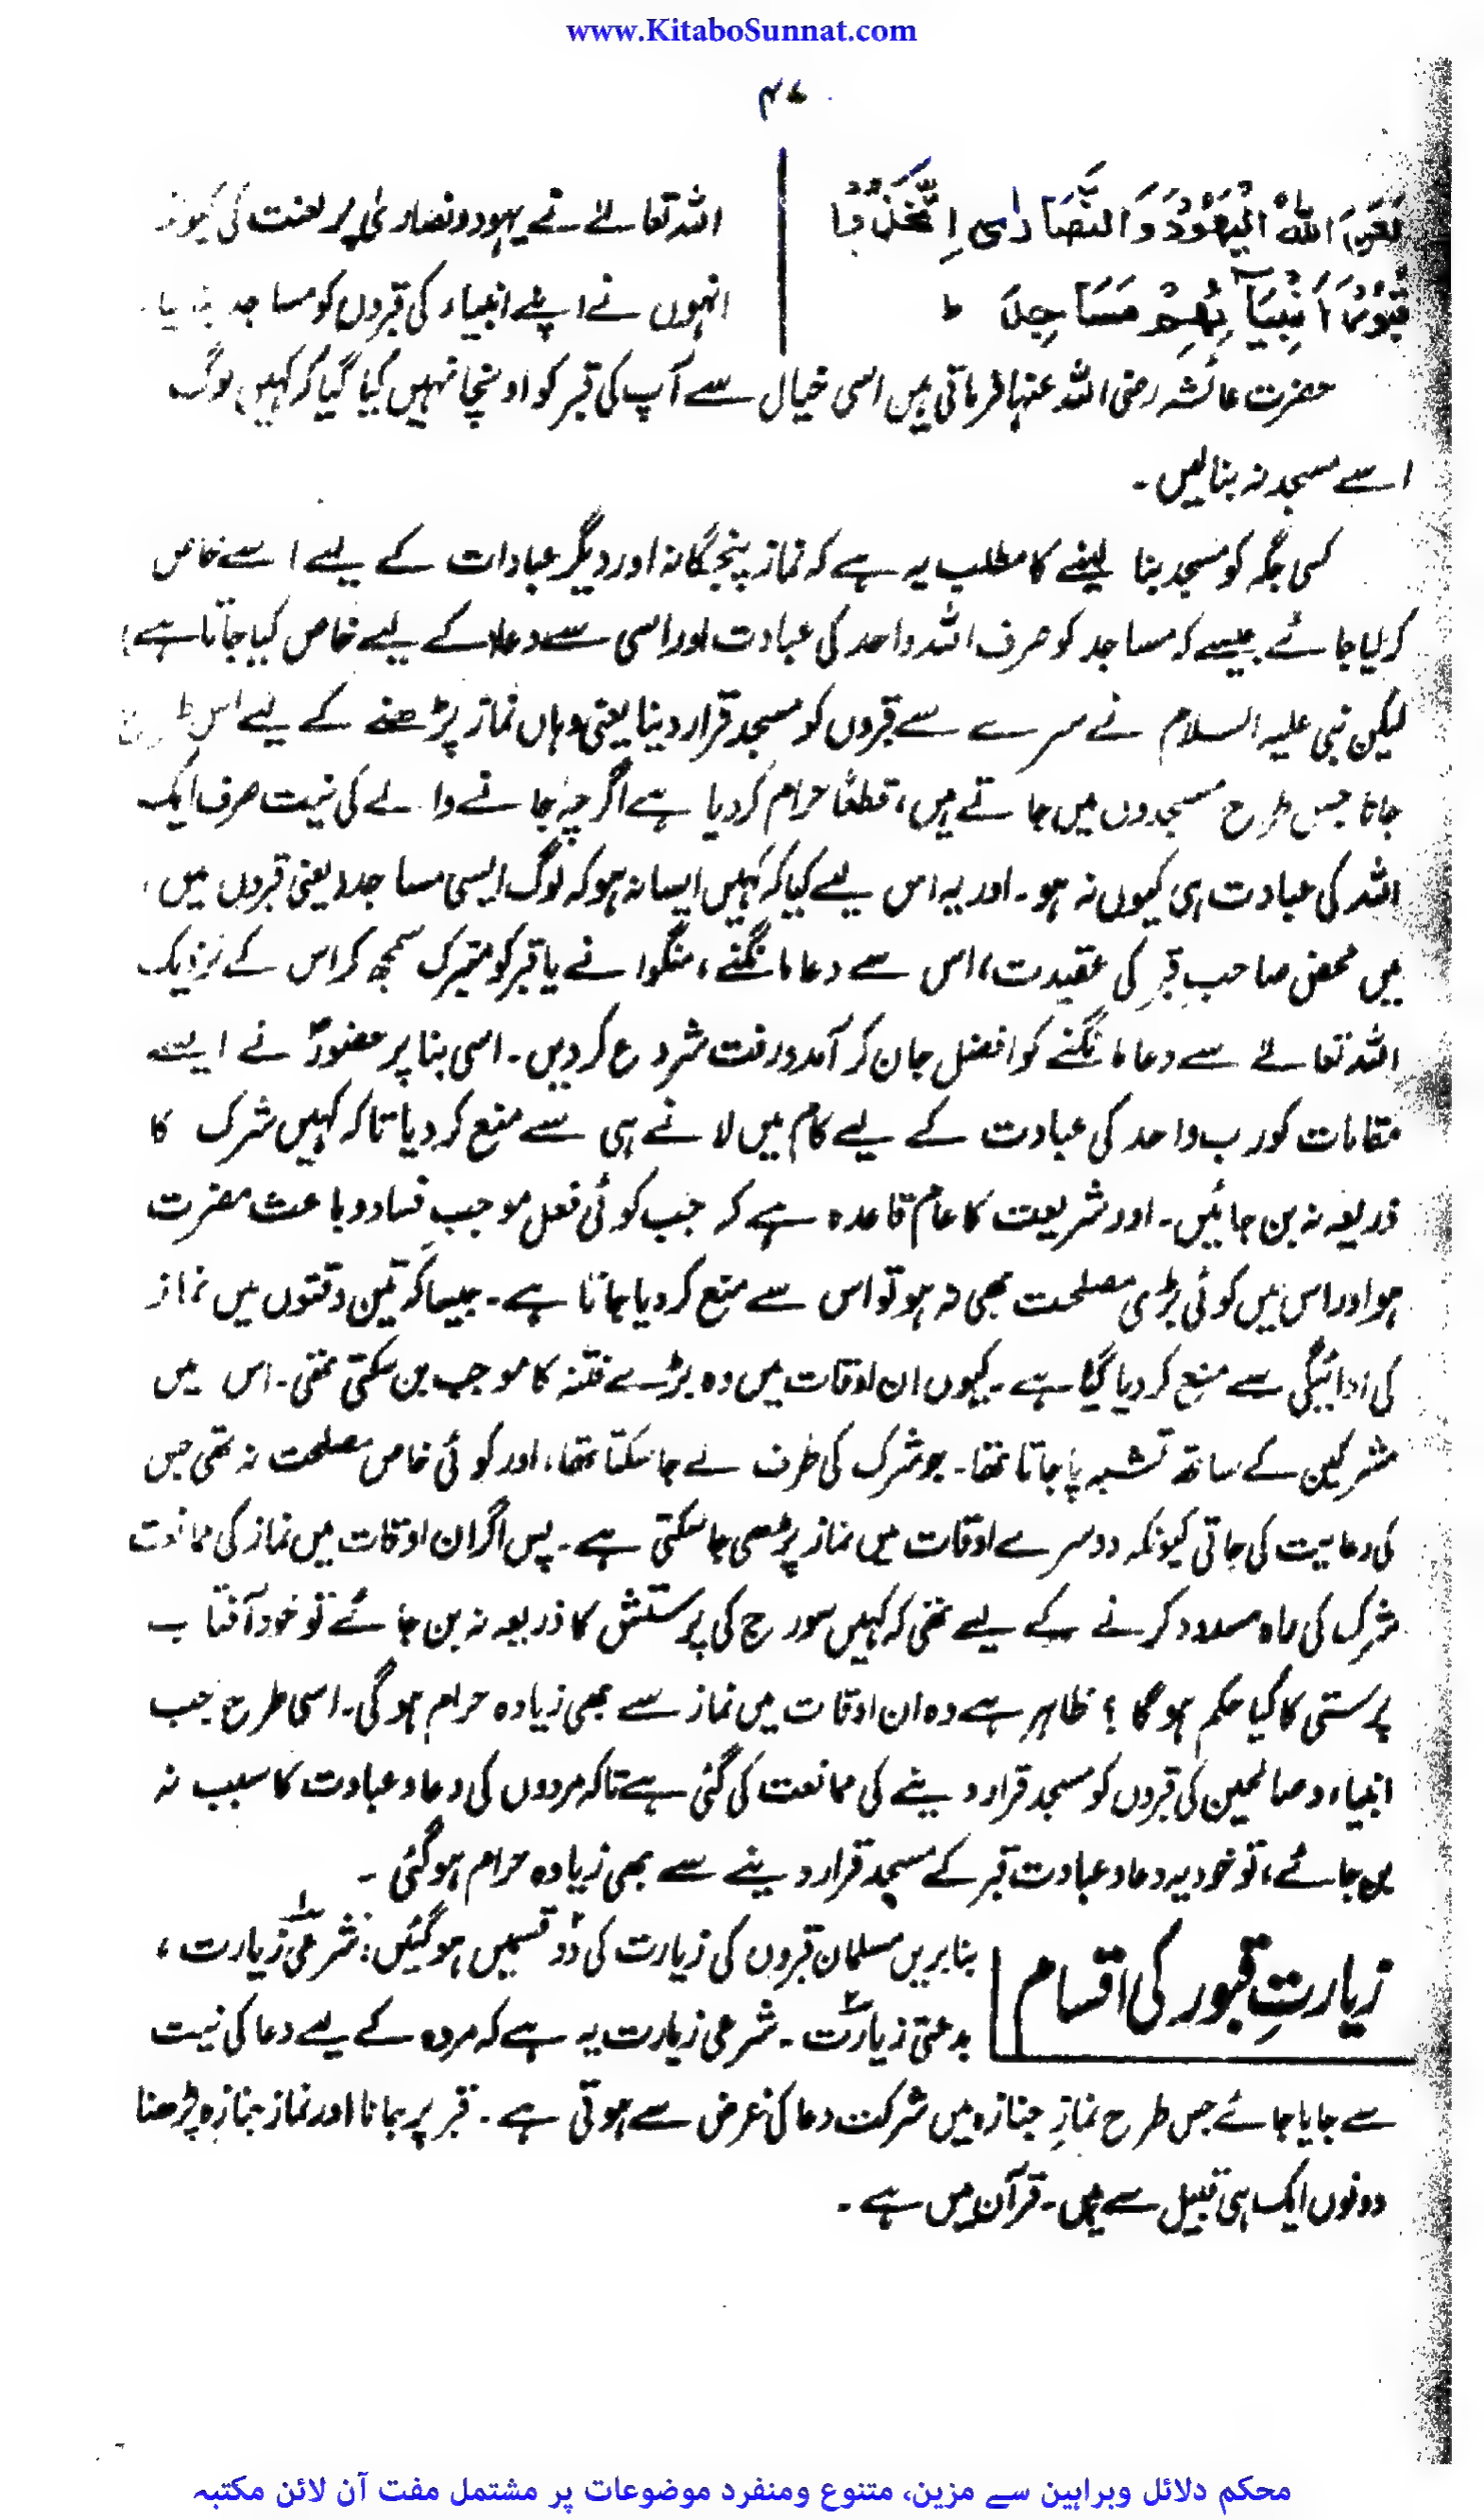 www.KitaboSunnat.com
۴۷
لَعَنَ اللّٰهُ الْیَهُوْدَ وَالنَّصَارٰی اِتَّخَذُوْا
قُبُوْرَ اَنْبِیَآئِهِمْ مَسَاجِدَ ط
اللہ تعالےٰ نے یہود و نصاریٰ پر لعنت کی کیونکہ
انہوں نے اپنے انبیاء کی قبروں کو مساجد بنا لیا۔
حضرت عائشہ رضی اللہ عنہا فرماتی ہیں اسی خیال سے آپ کی قبر کو اونچا نہیں کیا گیا کہ کہیں لوگ
اسے مسجد نہ بنالیں۔
کسی جگہ کو مسجد بنا لینے کا مطلب یہ ہے کہ نماز پنجگانہ اور دیگر عبادات کے لیے اسے خاص
کرلیا جائے جیسے کہ مساجد کو صرف اللہ واحد کی عبادت اور اسی سے دعاء کے لیے خاص کیا جاتا ہے)
لیکن نبی علیہ السلام نے سرے سے قبروں کو مسجد قرار دینا یعنی وہاں نماز پڑھنے کے لیے اس طرح
جانا جس طرح مسجدوں میں جاتے ہیں، قطعًا حرام کردیا ہے اگرچہ جانے والے کی نیت صرف ایک
اللہ کی عبادت ہی کیوں نہ ہو۔ اور یہ اس لیے کیا کہ کہیں ایسا نہ ہو کہ لوگ ایسی مساجد (یعنی قبروں میں)
میں محض صاحبِ قبر کی عقیدت، اس سے دعا مانگنے، منگوانے یا قبر کو متبرک سمجھ کر اس کے نزدیک
اللہ تعالےٰ سے دعا مانگنے کو افضل جان کر آمدورفت شروع کردیں۔ اسی بنا پر حضورؐ نے ایسے
مقامات کو رب واحد کی عبادت کے لیے کام میں لانے ہی سے منع کر دیا تاکہ کہیں شرک کا
ذریعہ نہ بن جائیں۔ اور شریعت کا عام قاعدہ ہے کہ جب کوئی فعل موجبِ فساد و باعث مضرت
ہو اور اس میں کوئی بڑی مصلحت بھی نہ ہو تو اس سے منع کر دیا جاتا ہے۔ جیسا کہ تین وقتوں میں نماز
کی ادائیگی سے منع کر دیا گیا ہے۔ کیوں ان اوقات میں وہ بڑے فتنہ کا موجب بن سکتی تھی۔ اس میں
مشرکین کے ساتھ تشبہ پاجاتا تھا۔ جو شرک کی طرف لے جا سکتا تھا، اور کوئی خاص مصلحت نہ تھی جس
کی رعایت کی جاتی کیونکہ دوسرے اوقات میں نماز پڑھی جا سکتی ہے۔ پس اگر ان اوقات میں نماز کی ممانعت
شرک کی راہ مسدود کرنے کے لیے تھی کہ کہیں سورج کی پرستش کا ذریعہ نہ بن جائے تو خود آفتاب
پرستی کا کیا حکم ہوگا؟ ظاہر ہے وہ ان اوقات میں نماز سے بھی زیادہ حرام ہوگی۔ اسی طرح جب
انبیاء و صالحین کی قبروں کو مسجد قرار دینے کی ممانعت کی گئی ہے تاکہ مردوں کی دعا و عبادت کا سبب نہ
بن جائے، تو خود یہ دعا و عبادت قبر کے مسجد قرار دینے سے بھی زیادہ حرام ہوگئی۔
زیارتِ قبور کی اقسام
بنا بریں مسلمان قبروں کی زیارت کی دو قسمیں ہوگئیں: شرعی زیارت،
بدعتی زیارت۔ شرعی زیارت یہ ہے کہ مردہ کے لیے دعا کی نیت
سے جایا جائے جس طرح نمازِ جنازہ میں شرکت دعا کی غرض سے ہوتی ہے۔ قبر پر جانا اور نماز جنازہ پڑھنا
دونوں ایک ہی قبیل سے ہیں۔ قرآن میں ہے۔
محکم دلائل وبراہین سے مزین، متنوع ومنفرد موضوعات پر مشتمل مفت آن لائن مکتبہ